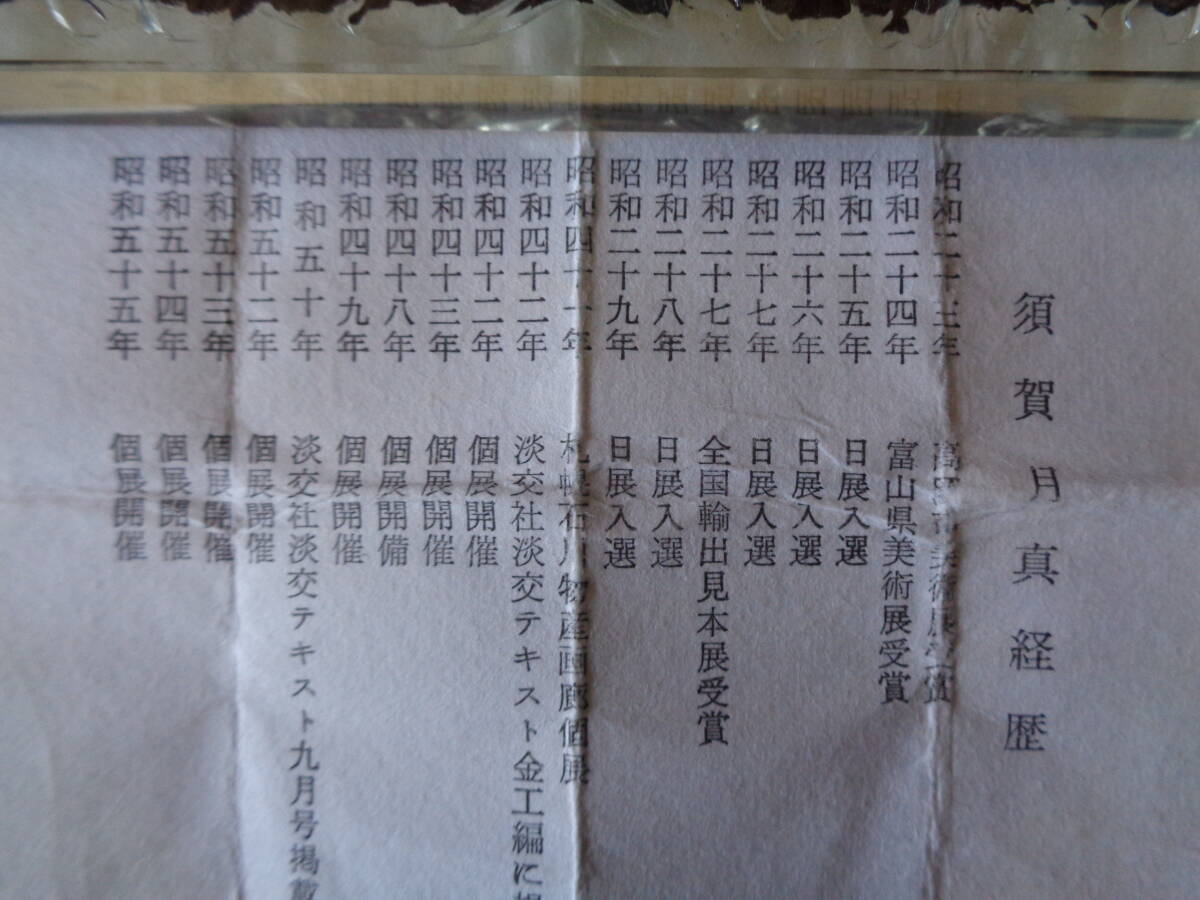 須賀月真経歴
昭和二十三年 高岡市美術展受賞
昭和二十四年 富山県美術展受賞
昭和二十五年 日展入選
昭和二十六年 日展入選
昭和二十七年 日展入選
昭和二十七年 全国輸出見本展受賞
昭和二十八年 日展入選
昭和二十九年 日展入選
昭和四十一年 札幌石川物産画廊個展
昭和四十二年 淡交社淡交テキスト金工編に掲
昭和四十二年 個展開催
昭和四十三年 個展開催
昭和四十八年 個展開備
昭和四十九年 個展開催
昭和五十年 淡交社淡交テキスト九月号掲載
昭和五十二年 個展開催
昭和五十三年 個展開催
昭和五十四年 個展開催
昭和五十五年 個展開催